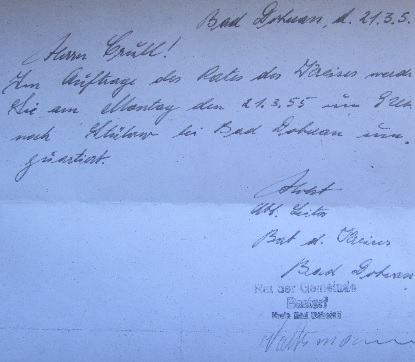 Bad Doberan, d. 21.3.5.
Herrn Crull!
Im Auftrage des Rates des Kreises werde
Sie am Montag den 21.3.55 um
nach bei Bad Doberan um-
quartiert.
Abt. Leiter
Rat d. Kreises
Bad Doberan
Rat der Gemeinde
Kreis Bad Doberan